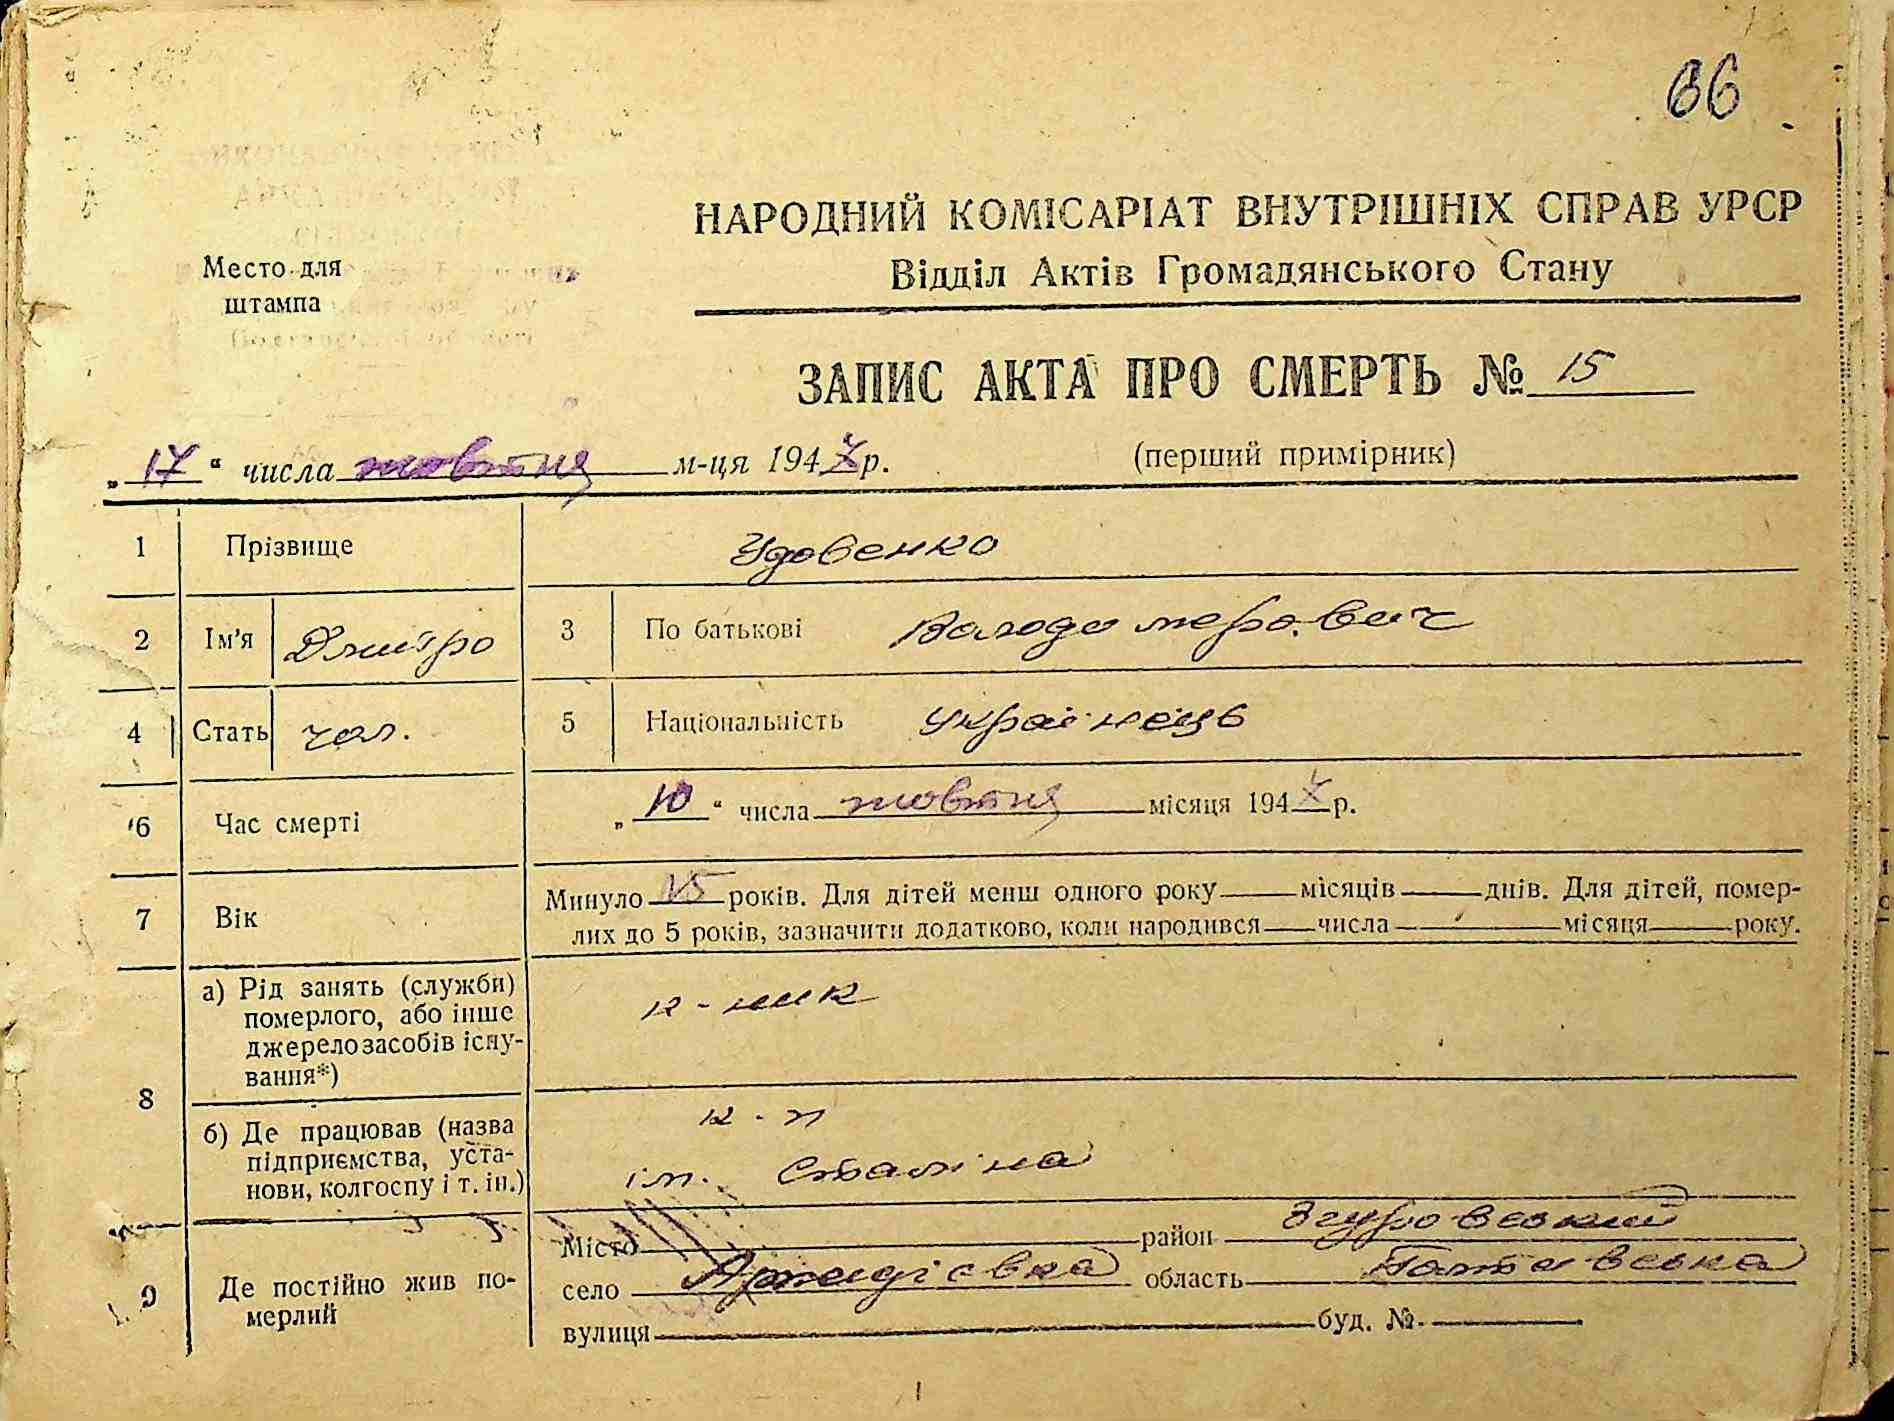 66
НАРОДНИЙ КОМІСАРІАТ ВНУТРІШНІХ СПРАВ УРСР
Відділ Актів Громадянського Стану
Место для
штампа
ЗАПИС АКТА ПРО СМЕРТЬ № 15
„17“ числа жовтня м-ця 1947 р.
(перший примірник)
1 Прізвище Удовенко
2 Ім'я Дмитро 3 По батькові Володимерович
4 Стать чол. 5 Національність українець
6 Час смерті „10“ числа жовтня місяця 1947 р.
7 Вік Минуло 15 років. Для дітей менш одного року місяців днів. Для дітей, помер-
лих до 5 років, зазначити додатково, коли народився числа місяця року.
8 а) Рід занять (служби)
померлого, або інше
джерело засобів існу-
вання*)
к-ник
б) Де працював (назва
підприємства, уста-
нови, колгоспу і т. ін.)
к-п
ім. Сталіна
9 Де постійно жив по-
мерлий
Місто район Згуровський
село Аркадієвка область Полтавська
вулиця буд. №